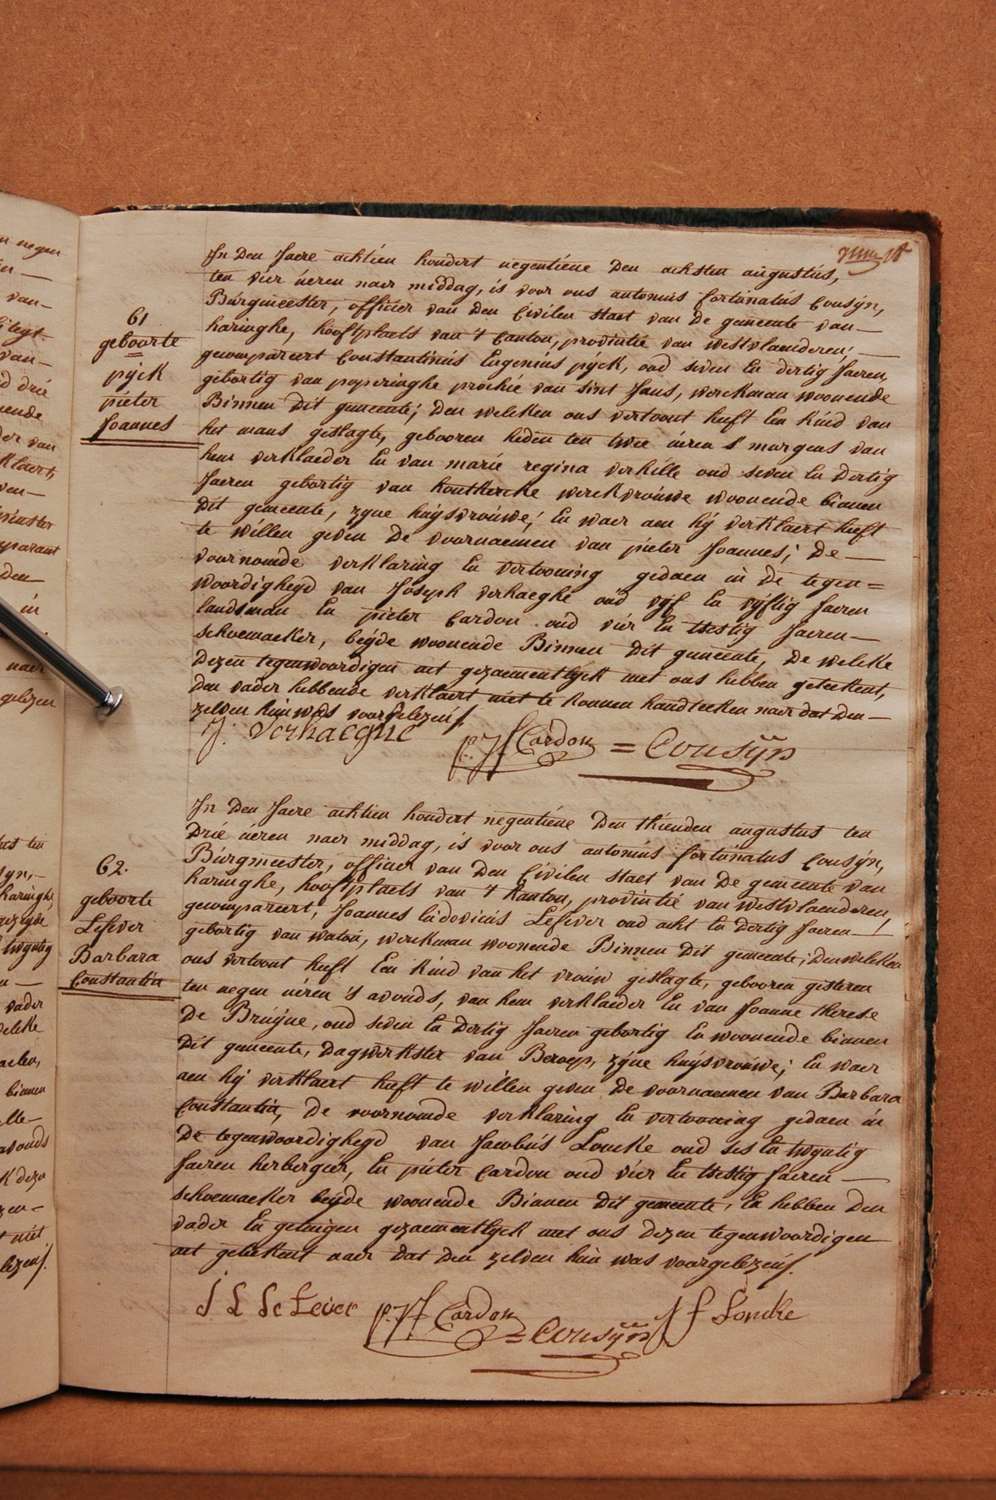 61
geboorte
pÿck
pieter
Joannes
In Den Jaere achtien hondert negentiene Den achsten augustus,
ten vier ueren naer middag, is voor ons antonius fortunatus Cousÿn,
Burgmeester, officier van den Civilen staet van De gemeente van
haringhe, hooftplaets van 't Canton, provintie van westvlaenderen,
gecompareert Constantinus Eugenius pÿck, oud seven En dertig Jaeren,
gebortig van poperinghe prochie van sint Jans, werckman woonende
Binnen Dit gemeente; Den welcken ons vertoont heeft Een Kind van
het mans geslagte, gebooren heden ten twee ueren s morgens van
hem verklaeder En van marie regina verhille oud seven En Dertig
Jaeren gebortig van houtkercke werckvrouwe woonende binnen
Dit gemeente, zyne huysvrouwe; En waer aen hÿ verklaert heeft
te willen geven De voornaemen van pieter Joannes; De
voornomde verklaring En vertooning gedaen in De tegen=
woordighegd van Joseph verhaeghe oud vÿf En vÿftig Jaeren
landsman En pieter Cardon oud vier En tsestig Jaeren
schoemaeker, beÿde woonende Binnen Dit gemeente, De welcke
Dezen tegenwoordigen act gezaementlÿck met ons hebben geteekent,
Den vader hebbende verklaert niet te konnen handteeken naer dat Den
zelven hun was voorgelezen.
J. Verhaeghe P. J. Cardon = Cousÿn
62.
geboorte
Lefever
Barbara
Constantia
In Den Jaere achtien hondert negentiene Den thienden augustus ten
Drie ueren naer middag, is voor ons antonius fortunatus Cousÿn,
Burgmeester, officier van Den Civilen staet van De gemeente van
haringhe, hooftplaets van 't Kanton, provintie van westvlaenderen,
gecompareert, Joannes Ludovicus Lefever oud acht En Dertig Jaeren
gebortig van watou, werckman woonende Binnen Dit gemeente; Den welcken
ons vertoont heeft Een Kind van het vrouw geslagte, gebooren gisteren
ten negen ueren 's avonds, van hem verklaeder En van Joanne therese
De Bruyne, oud seven En Dertig Jaeren gebortig En woonende binnen
Dit gemeente, Dagwerkster van Beroep, zÿne huysvrouwe; En waer
aen hÿ verklaert heeft te willen geven De voornaemen van Barbara
Constantia, De voornomde verklaring En vertooning gedaen in
De tegenwoordighegd van Jacobus Loncke oud ses En twyntig
Jaeren herbergier, En pieter Cardon oud vier En tsestig Jaeren
schoemaeker beÿde woonende Binnen Dit gemeente, En hebben Den
vader En getuigen gezaementlÿck met ons Dezen tegenwoordigen
act geteekent naer Dat Den zelven hun was voorgelezen.
J L Le Fever P. J. Cardon = Cousÿn J f Loncke